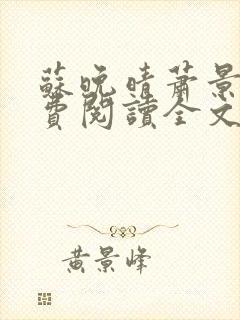 蘇晚晴蕭景
費閱讀全文
黃景峰